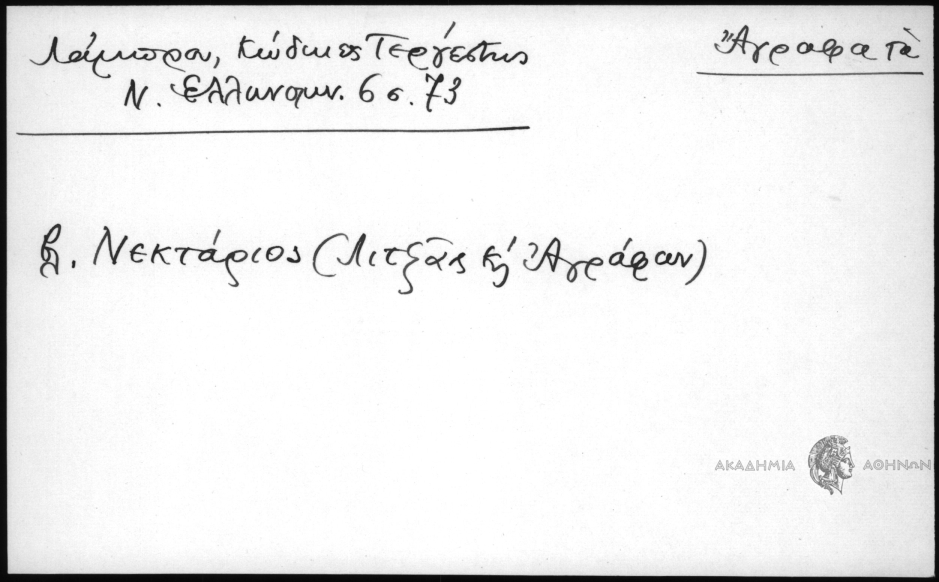 Λάμπρου, Κώδικες Τεργέστης
Ν. Ελληνομν. 6 σ. 73
Ἄγραφα τὰ
βλ. Νεκτάριος (Λιτζᾶς κ' Ἀγράφων)
ΑΚΑΔΗΜΙΑ ΑΘΗΝΩΝ